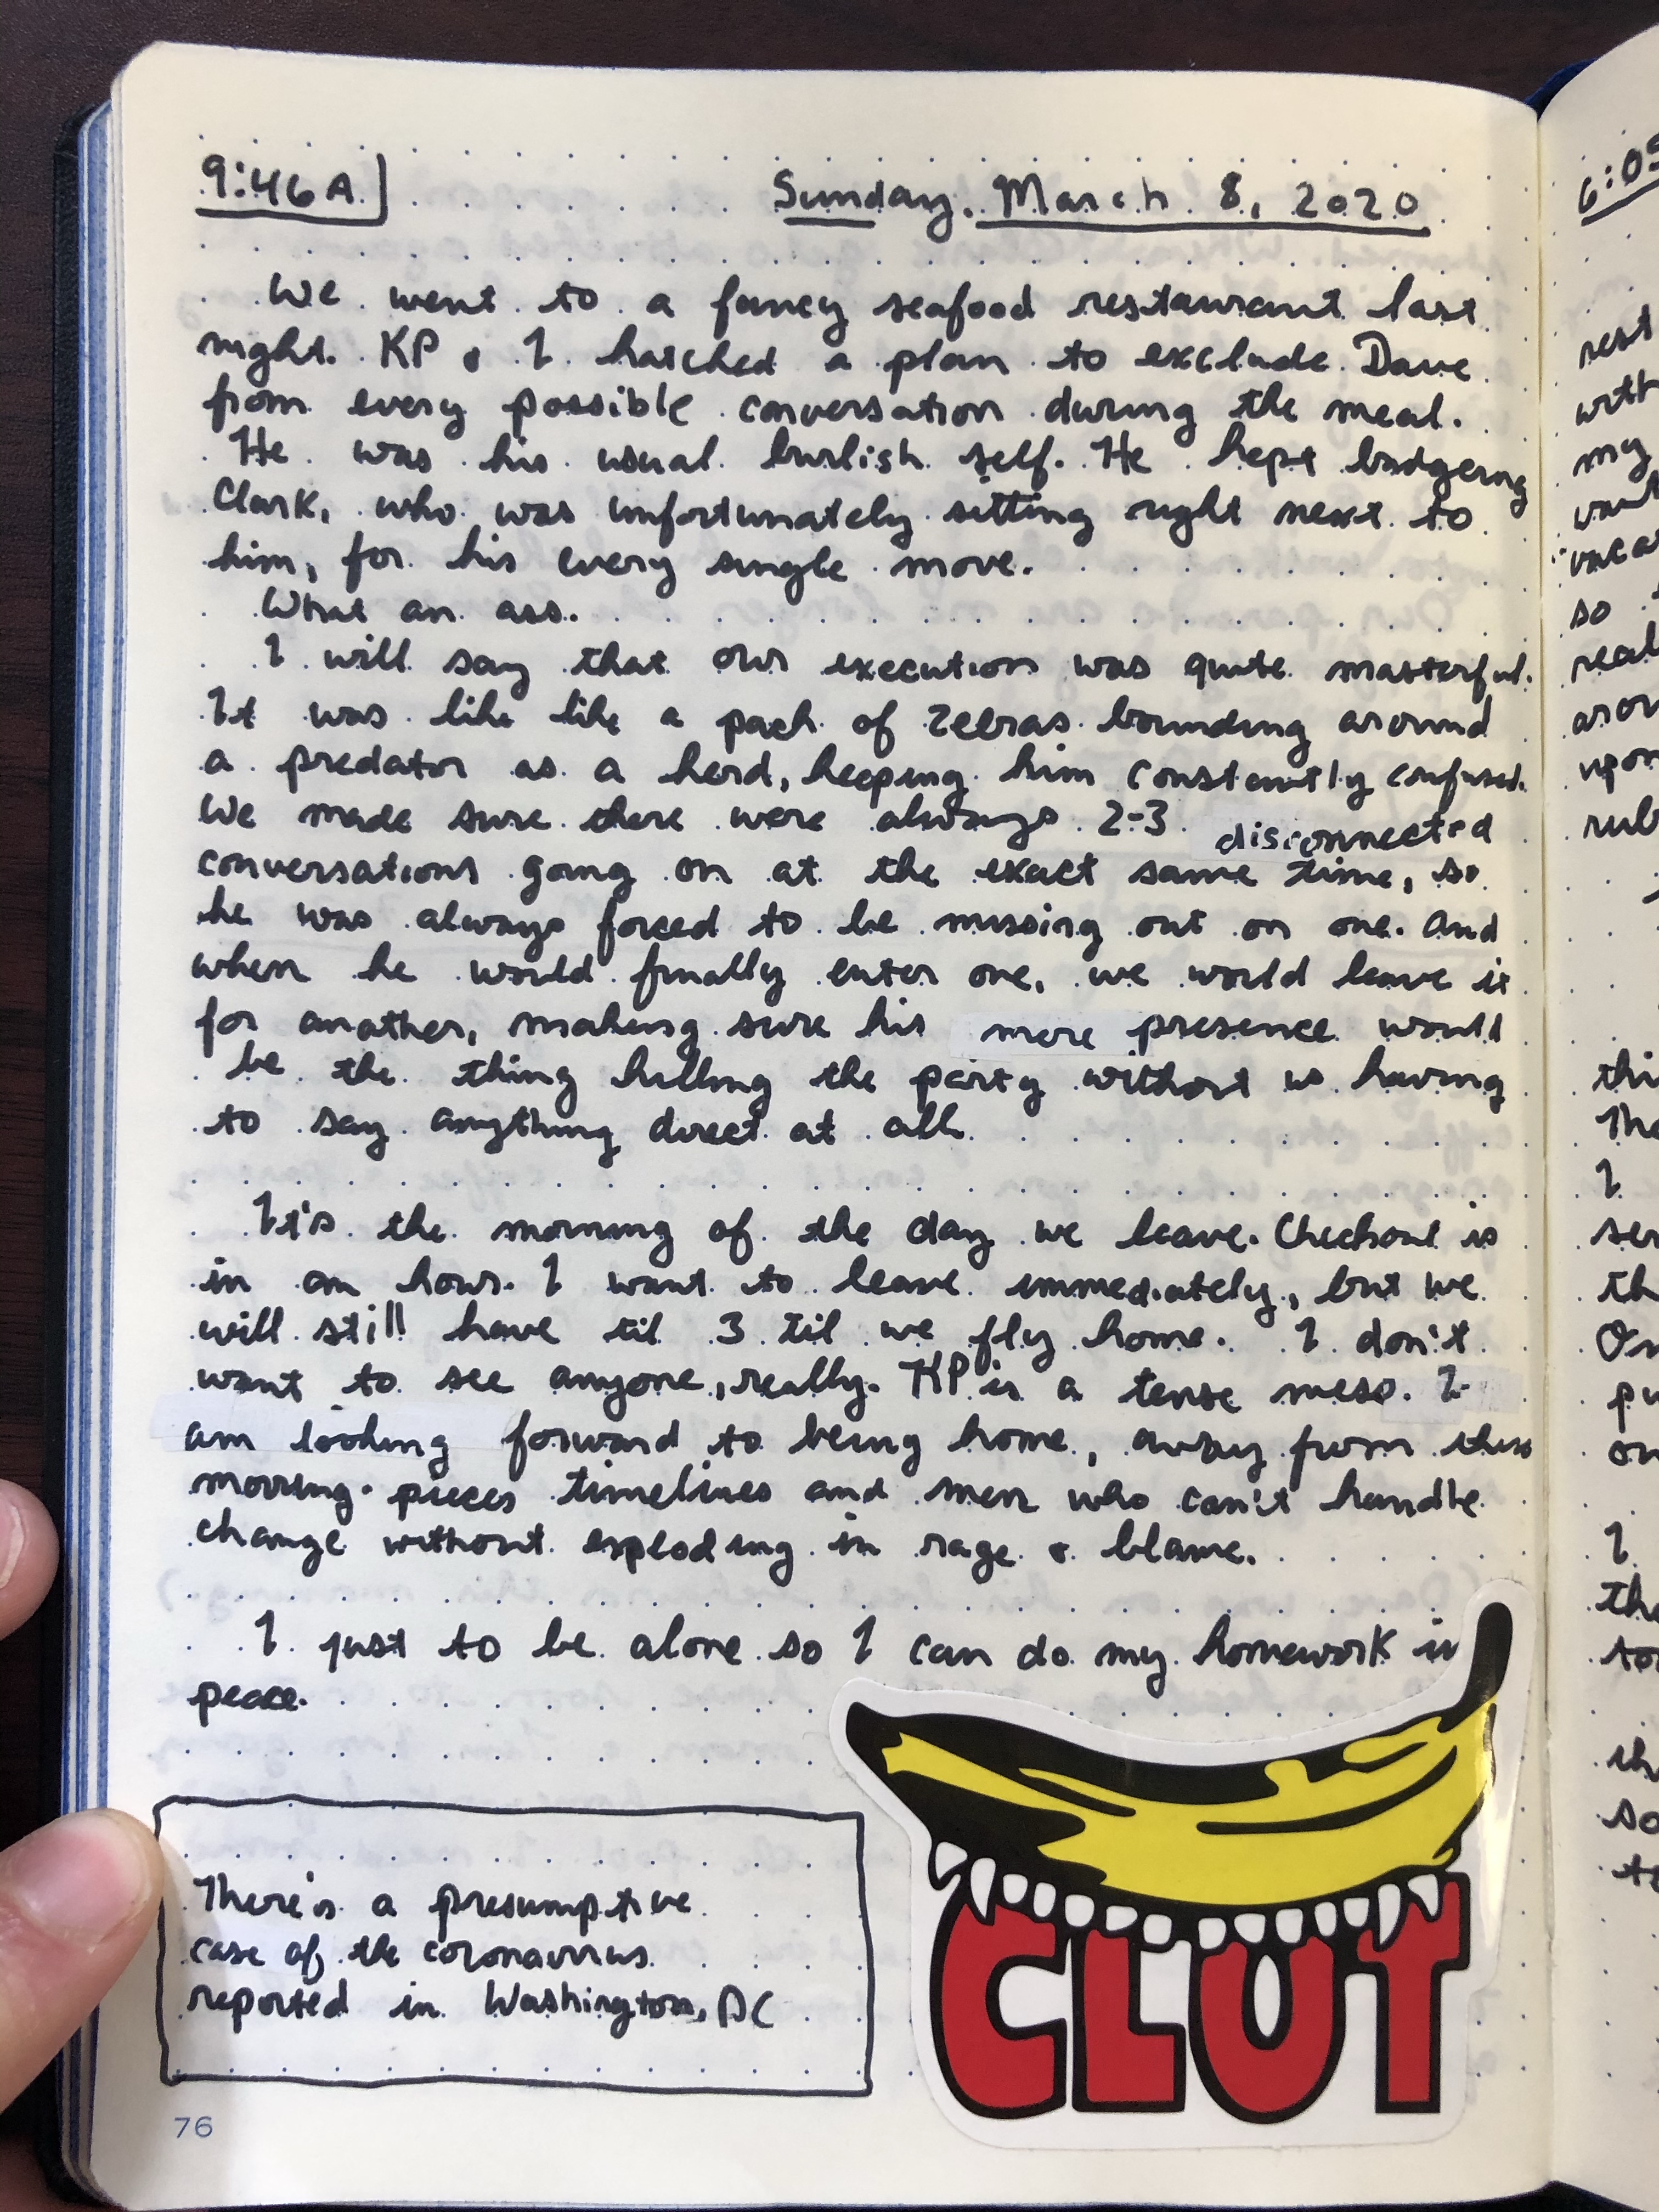 9:46A
Sunday, March 8, 2020
We went to a fancy seafood restaurant last
night. KP & I hatched a plan to exclude Dave
from every possible conversation during the meal.
He was his usual burlish self. He kept badgering
Clark, who was unfortunately sitting right next to
him, for his every single move.
What an ass.
I will say that our execution was quite masterful.
It was like like a pack of zebras bounding around
a predator as a herd, keeping him constantly confused.
We made sure there were always 2-3 disconnected
conversations going on at the exact same time, so
he was always forced to be missing out on one. And
when he would finally enter one, we would leave it
for another, making sure his mere presence would
be the thing killing the party without us having
to say anything direct at all.
It's the morning of the day we leave. Checkout is
in an hour. I want to leave immediately, but we
will still have til 3 til we fly home. I don't
want to see anyone, really. KP is a tense mess. I
am looking forward to being home, away from these
moving-pieces timelines and men who can't handle
change without exploding in rage & blame.
I just to be alone so I can do my homework in
peace.
There's a presumptive
case of the coronavirus
reported in Washington, DC
CLUT
76
6:05
rest
with
my
so
real
upon
rub
I
I